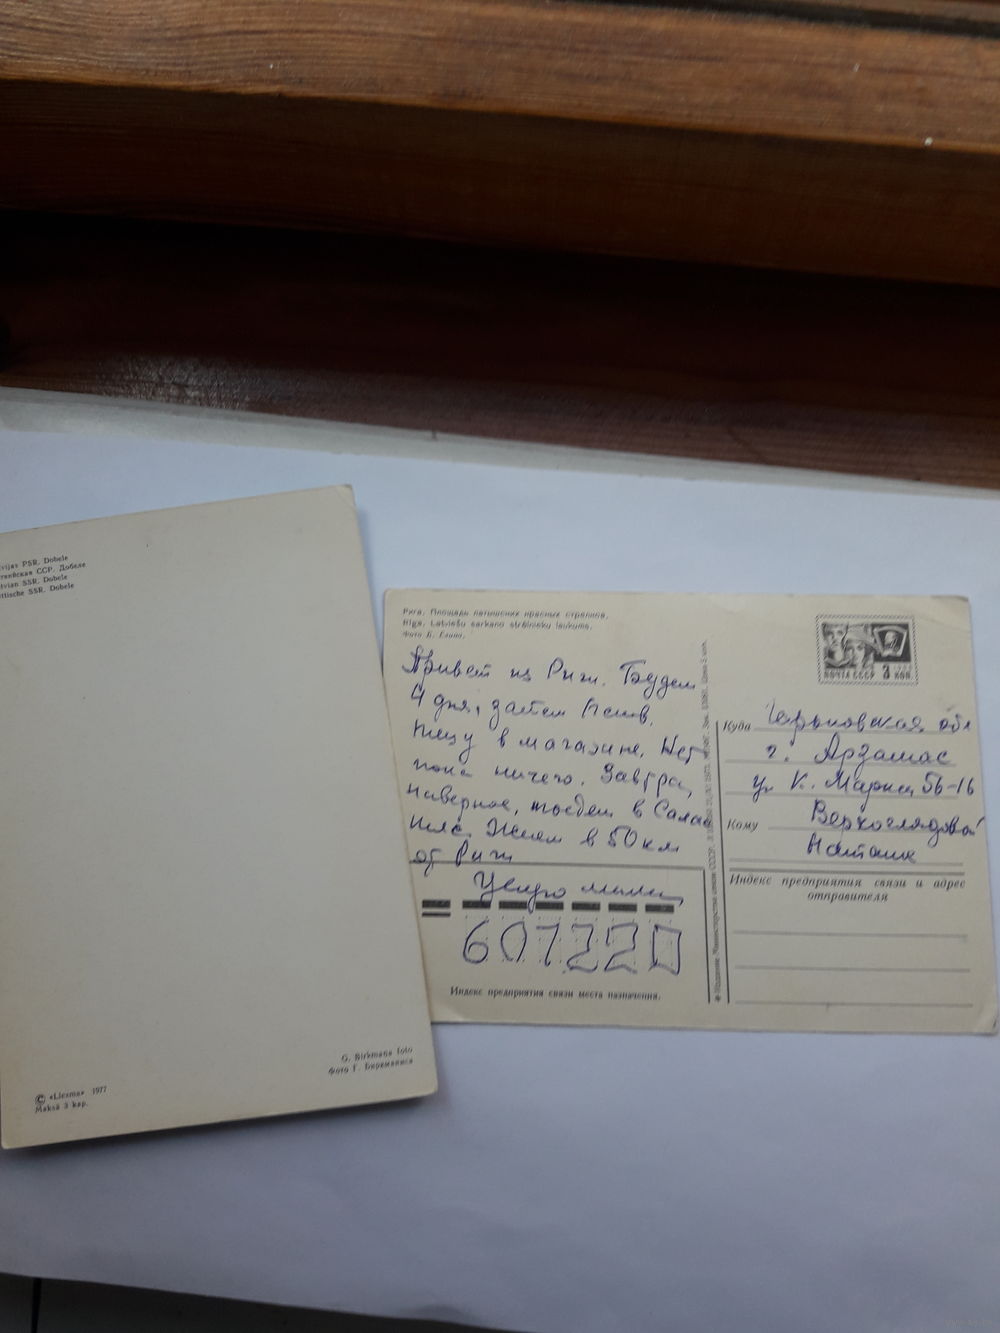 vijas PSR. Dobele
ская ССР. Добеле
vian SSR. Dobele
ttische SSR. Dobele
G. Birkmaņa foto
Фото Г. Биркманиса
© «Liesma» 1977
Maksā 3 kap.
Рига. Площадь латышских красных стрелков.
Rīga. Latviešu sarkano strēlnieku laukums.
Фото
ПОЧТА СССР 3 КОП.
Привет из Риги. Будем
4 дня, затем
в магазине. Нет
пока ничего. Завтра,
наверное, поедем в Салас
пилс. Живем в 50 км
от Риги
Целую
607220
Индекс предприятия связи места назначения.
Министерства связи СССР.
Куда обл
г. Арзамас
ул К. Маркса 56-16
Кому Верхоглядовой
Наташе
Индекс предприятия связи и адрес
отправителя